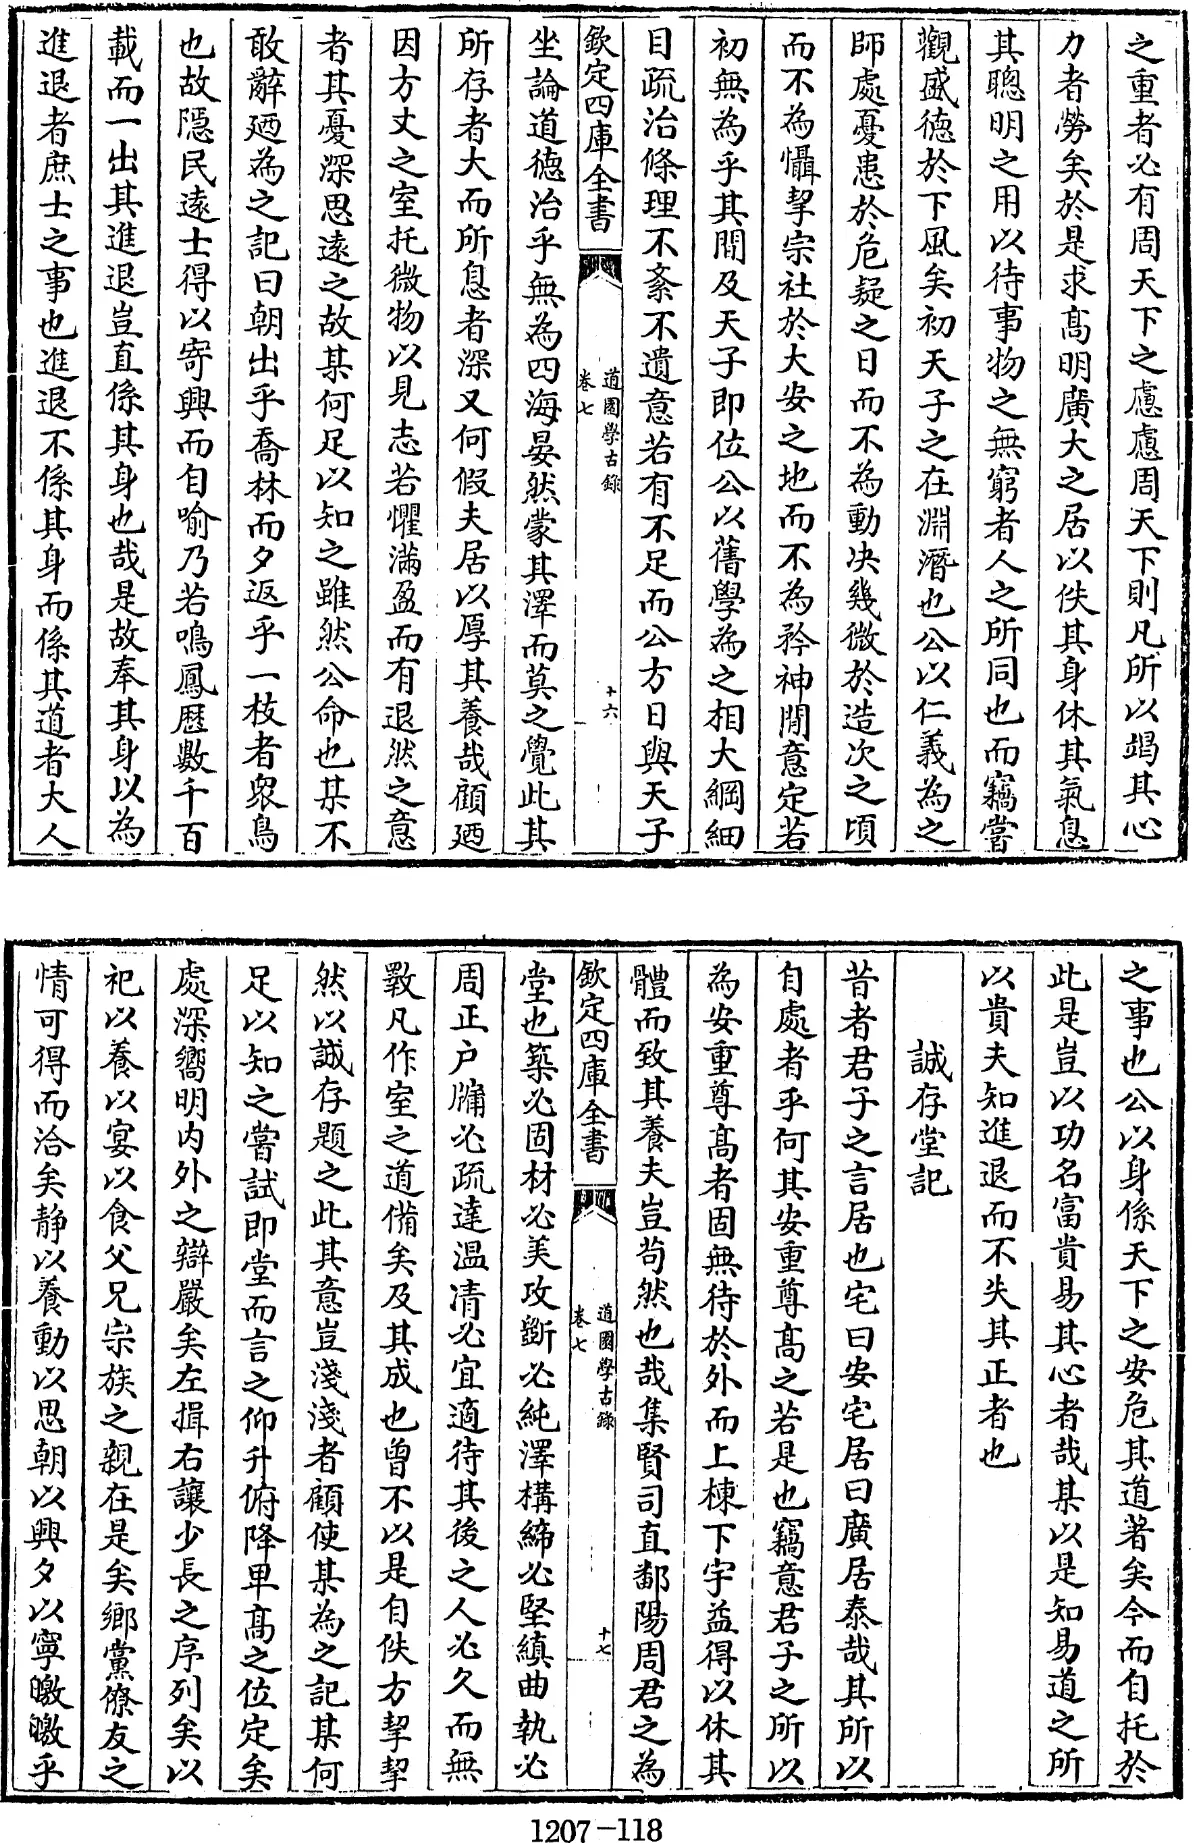 之重者必有周天下之慮慮周天下則凡所以竭其心
力者勞矣於是求髙明廣大之居以佚其身休其氣息
其聰明之用以待事物之無窮者人之所同也而竊嘗
觀盛德於下風矣初天子之在淵潛也公以仁義為之
師處憂患於危疑之日而不為動决幾微於造次之頃
而不為懾挈宗社於大安之地而不為矜神閒意定若
初無為乎其間及天子即位公以舊學為之相大綱細
目疏治條理不紊不遺意若有不足而公方日與天子
欽定四庫全書
道園學古錄
卷七
十六
坐論道德治乎無為四海晏然蒙其澤而莫之覺此其
所存者大而所息者深又何假夫居以厚其養哉顧廼
因方丈之室托微物以見志若懼滿盈而有退然之意
者其憂深思遠之故某何足以知之雖然公命也某不
敢辭廼為之記曰朝出乎喬林而夕返乎一枝者衆鳥
也故隱民逺士得以寄興而自喻乃若鳴鳳歴數千百
載而一出其進退豈直係其身也哉是故奉其身以為
進退者庶士之事也進退不係其身而係其道者大人
之事也公以身係天下之安危其道著矣今而自托於
此是豈以功名富貴易其心者哉某以是知易道之所
以貴夫知進退而不失其正者也
誠存堂記
昔者君子之言居也宅曰安宅居曰廣居泰哉其所以
自處者乎何其安重尊髙之若是也竊意君子之所以
為安重尊髙者固無待於外而上棟下宇益得以休其
體而致其養夫豈苟然也哉集賢司直鄱陽周君之為
欽定四庫全書
道園學古錄
卷七
十七
堂也築必固材必美攻斵必純澤構締必堅縝曲執必
周正户牖必疏達温凊必宜適待其後之人必久而無
斁凡作室之道備矣及其成也曽不以是自佚方挈挈
然以誠存題之此其意豈淺淺者顧使某為之記某何
足以知之嘗試即堂而言之仰升俯降卑髙之位定矣
處深嚮明内外之辯嚴矣左揖右讓少長之序列矣以
祀以養以宴以食父兄宗族之親在是矣鄉黨僚友之
情可得而洽矣静以養動以思朝以興夕以寧皦皦乎
1207-118